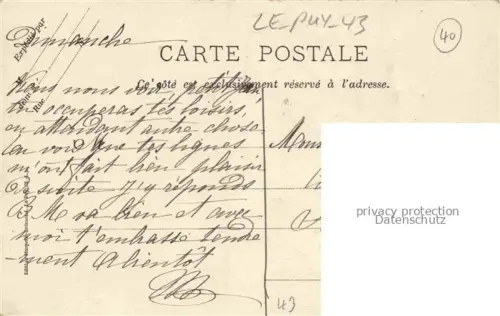 LE-PUY-43
40
Dimanche
Expédié par
CARTE POSTALE
Ce côté est exclusivement réservé à l'adresse.
Viens nous voir,
tu occuperas tes loisirs,
en attendant autre chose
que tes lignes
m'ont fait bien plaisir
de suite j'y réponds
B M va bien et avec
moi t'embrasse tendre
ment A bientôt
Rue
Mons
privacy protection
Datenschutz
43